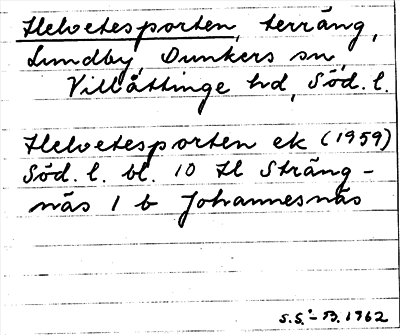 Helvetesporten, terräng,
Lundby, Dunkers sn,
Villåttinge hd, Söd. l.
Helvetesporten ek (1959)
Söd. l. bl. 10 H Sträng-
näs 1 b Johannesnäs
S.S:-B. 1962